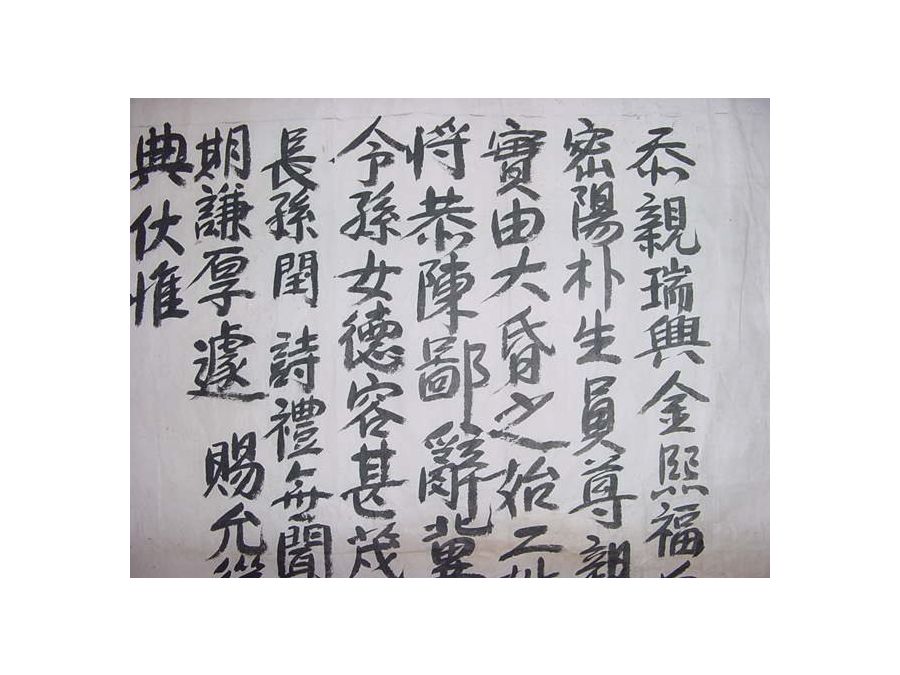 忝親瑞興金熙福
密陽朴生員尊親
實由大昏之始二姓
将恭陳鄙辭冀
令孫女德容甚茂
長孫閏 詩禮無聞
期謙厚遽 賜允從
典伏惟